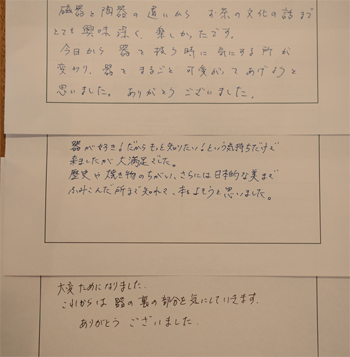 磁器と陶器の違いから お茶の文化の話まで
とても興味深く、楽しかったです。
今日から 器を扱う時に気にする所が
変わり、器を まるごと 可愛がってあげようと
思いました。ありがとう ございました。
器が好き!だからもっと知りたい!という気持ちだけで
来ましたが大満足でした。
歴史や焼き物のちがい、さらには日本的な美まで
ふみこんだ所まで知れて、本をよもうと思いました。
大変ためになりました。
これからは 器の裏の部分を気にしていきます。
ありがとう ございました。